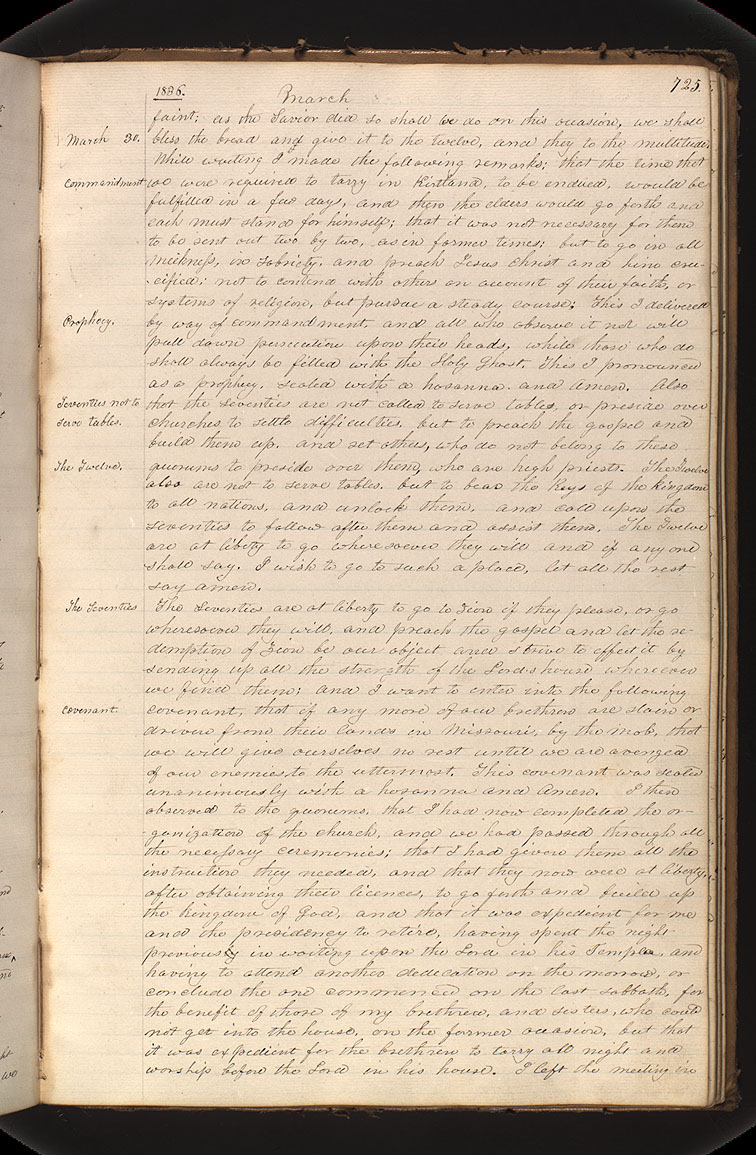 1836. March 725.
faint; as the Savior did so shall we do on this occasion, we shall
March 30. bless the bread and give it to the twelve, and they to the multitude,
While waiting I made the following remarks; that the time that
Commandment we were required to tarry in Kirtland, to be endued, would be
fulfilled in a few days, and then the elders would go forth and
each must stand for himself; that it was not necessary for them
to be sent out two by two, as in former times; but to go in all
meekness, in sobriety, and preach Jesus Christ and him cru-
-cified; not to contend with others on account of their faith, or
systems of religion, but pursue a steady course; This I delivered
Prophecy. by way of commandment, and all who observe it not will
pull down persecution upon their heads, while those who do
shall always be filled with the Holy Ghost. This I pronounced
as a prophecy, sealed with a hosanna and amen. Also
Seventies not to that the seventies are not called to serve tables, or preside over
serve tables. churches to settle difficulties, but to preach the gospel and
build them up, and set others, who do not belong to these
The Twelve. quorums to preside over them, who are high priests. The Twelve
also are not to serve tables, but to bear the keys of the kingdom
to all nations, and unlock them, and call upon the
seventies to follow after them and assist them. The Twelve
are at liberty to go wheresoever they will and if any one
shall say, I wish to go to such a place, let all the rest
say amen.
The Seventies The seventies are at liberty to go to Zion if they please, or go
wheresoever they will, and preach the gospel and let the re-
demption of Zion be our object and strive to effect it by
sending up all the strength of the Lord's house wherever
we find them; and I want to enter into the following
covenant. covenant, that if any more of our brethren are slain or
driven from their lands in Missouri, by the mob, that
we will give ourselves no rest until we are avenged
of our enemies to the uttermost. This covenant was sealed
unanimously with a hosanna and amen. I then
observed to the quorums, that I had now completed the or-
-ganization of the church, and we had passed through all
the necessary ceremonies; that I had given them all the
instruction they needed, and that they now were at liberty,
after obtaining their licences, to go forth and build up
the kingdom of God, and that it was expedient for me
and the presidency to retire, having spent the night
previously in waiting upon the Lord in his Temple, and
having to attend another dedication on the morrow, or
conclude the one commenced on the last sabbath, for
the benefit of those of my brethren, and sisters, who could
not get into the house, on the former occasion, but that
it was expedient for the brethren to tarry all night and
worship before the Lord in his house. I left the meeting in